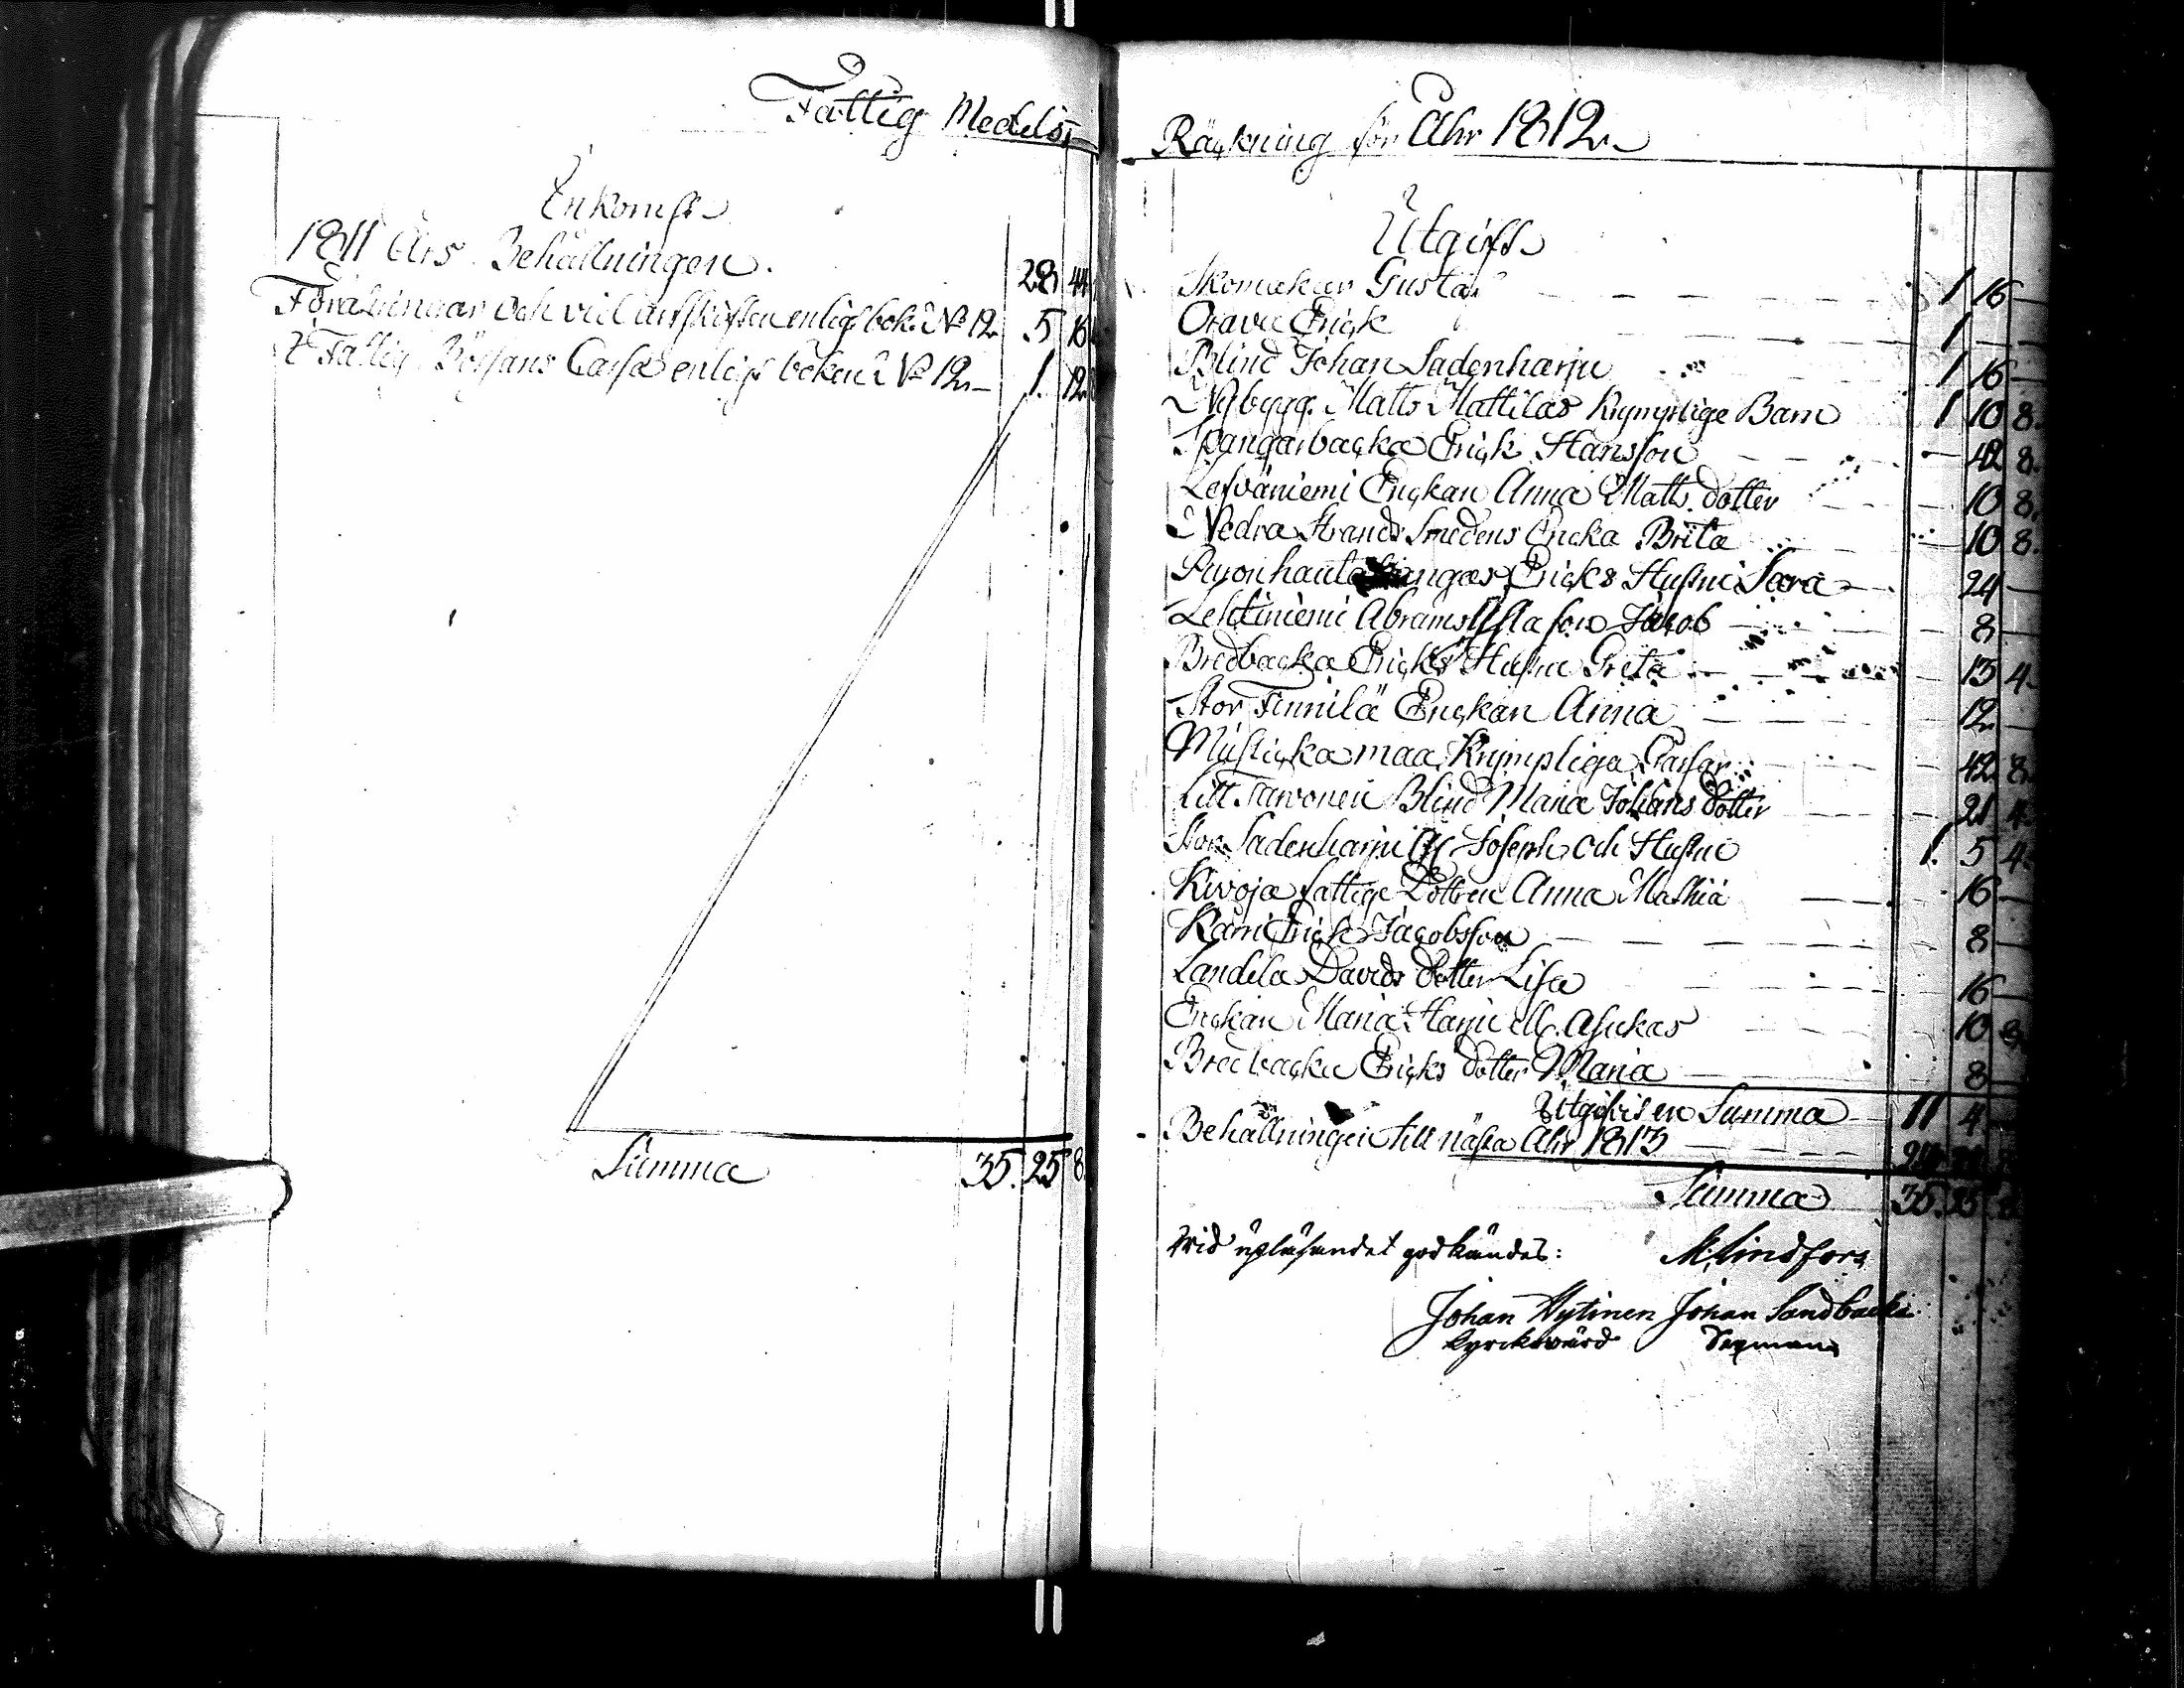 Fattig Medels,
Inkomst
1811 Års Behållningen. 28 44
Föräringar och vid arfskiften enligt bok: N° 12 5 16
Fattig Börsans Cassa enligt boken N° 12 1. 12
Summa 35. 25 8.
Räckning för Ahr 1812.
Utgift
Skomakar Gustaf 1 16 —
Orava Erick 1 — —
Blind Johan Sadenharju 1 16 —
Nybygg. Matts Mattilas Krymplige Barn 1 10 8.
Spangarbacka Erick Hansson — 42 8.
Lesväniemi Enckan Anna Matts dotter 10 8.
Nedra Strands Smedens Encka Brita 10 8.
Ericks Hustru Sara 24 —
Lehtiniemi Abrams son Jacob 8 —
Bredbacka Ericks Hustru Greta 13 4.
Stor Finnilä Enckan Anna 12. —
Krympliga Gossar 42. 8.
Litt Tarvonen Blind Maria Johans dotter 21 4.
Stor Sadenharju Joseph och Hustru 1. 5 4.
Kivoja fattige Dottren Anna Mathia 16 —
Kämi Erick Jacobsson 8 —
Landela Davids dotter Lisa 16 —
Enckan Maria Harju ell. Asukas 10 8.
Bredbacka Ericks dotter Maria 8 —
Utgiftsen Summa 11 4
Behållningen till nästa Ahr 1813
Summa 35. 25. 8
Vid upläsandet godkändes: M: Lindfors
Johan Hytinen Johan Sandbacka
kyrckovärd Sexman